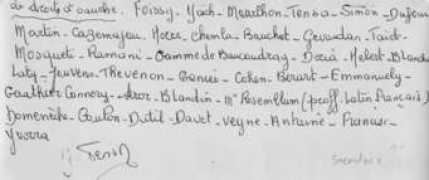 de droite à gauche. Foissy. Yach - Mearlhon - Tenoa - Simon - Dufour
Martin - Cazemajou. Chemla. Bauchet - Gevaudan - Taict -
Mosqueti - Ramoni - Gamme de Baucaudray - Doria - Hebert - Blanche
Laty - Jeuvens - Thevenon - Cohen. Berart - Emmanuely -
Gauthier Connery - Blandin - Mr Rosemblum (proff. Latin Français)
Domenèche - Goulon - Dutil - Davet - Veyne - Antoine -
Yvorra